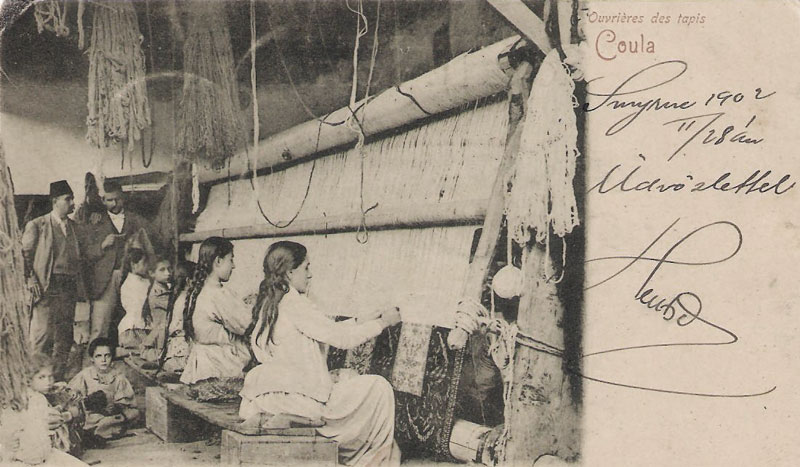 Ouvrières des tapis
Coula
Smyrne 1902
II/28án
Üdvözlettel